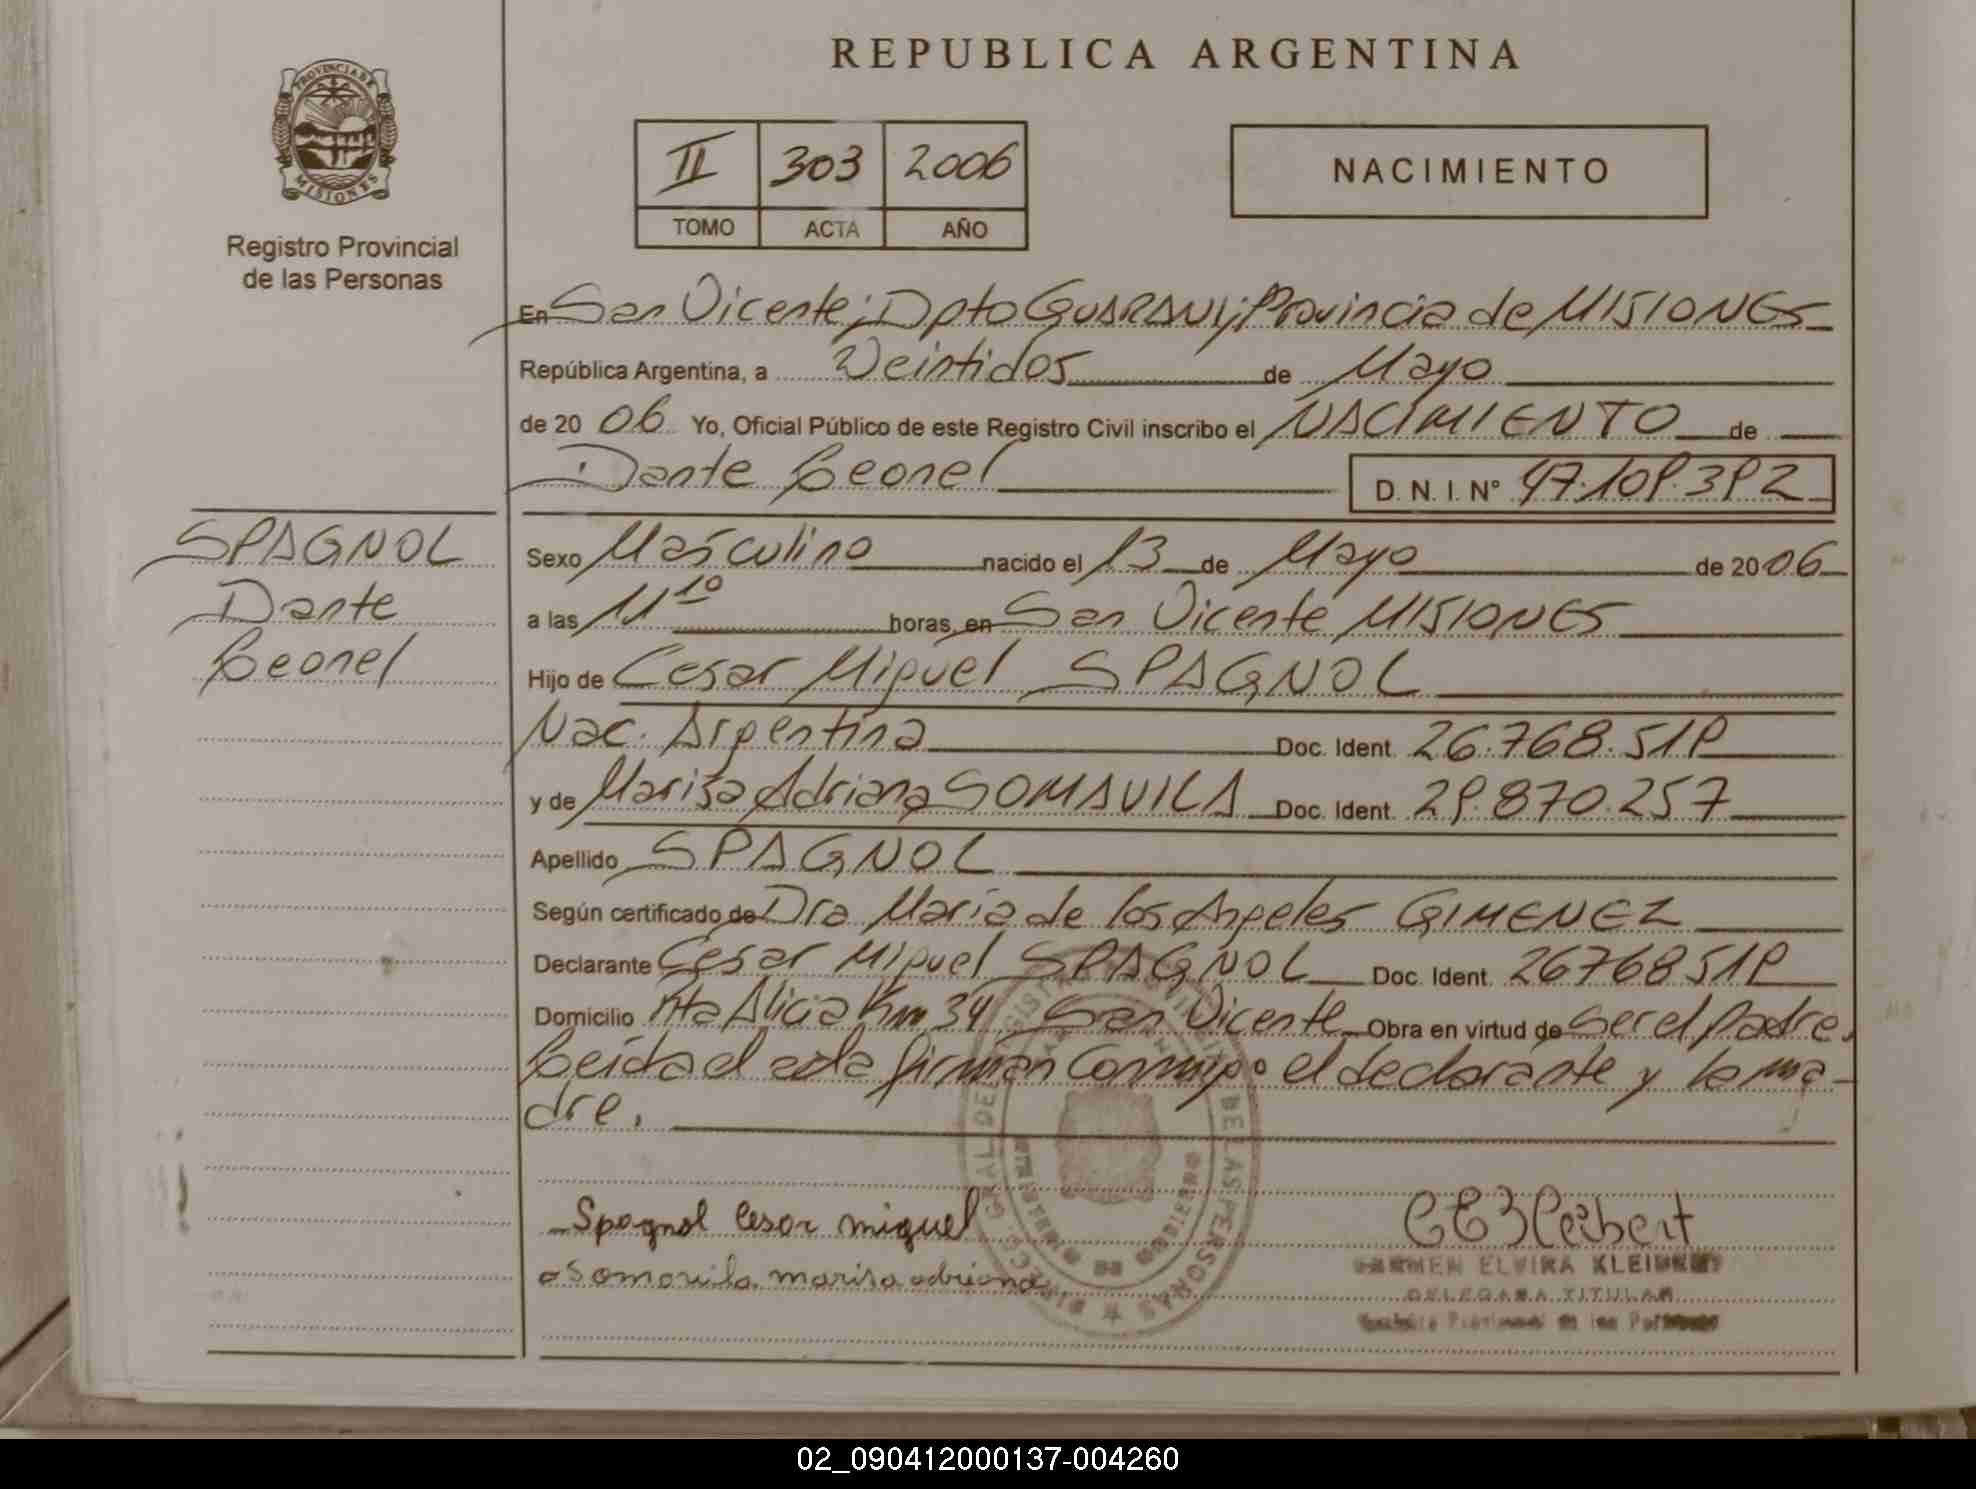 REPUBLICA ARGENTINA
PROVINCIA DE
MISIONES
Registro Provincial
de las Personas
II 303 2006
TOMO ACTA AÑO
NACIMIENTO
En San Vicente; Dpto GUARANI; Provincia de MISIONES
República Argentina, a Veintidos de Mayo
de 2006 Yo, Oficial Público de este Registro Civil inscribo el NACIMIENTO de
Dante Leonel D.N.I. Nº 47.109.392
SPAGNOL
Dante
Leonel
Sexo Masculino nacido el 13 de Mayo de 2006
a las 11 10 horas, en San Vicente MISIONES
Hijo de Cesar Miguel SPAGNOL
Nac. Argentina Doc. Ident. 26.768.519
y de Marisa Adriana SOMAVILA Doc. Ident. 29.870.257
Apellido SPAGNOL
Según certificado de Dra Maria de los Angeles GIMENEZ
Declarante Cesar Miguel SPAGNOL Doc. Ident. 26768519
Domicilio Pta Alicia Km 34 San Vicente Obra en virtud de ser el padre.
Leida el acta firman conmigo el declarante y la ma-
dre.
Spagnol Cesar miguel
Somavila marisa adriana
CARMEN ELVIRA
DELEGADA TITULAR
Registro Provincial de las Personas
02_090412000137-004260